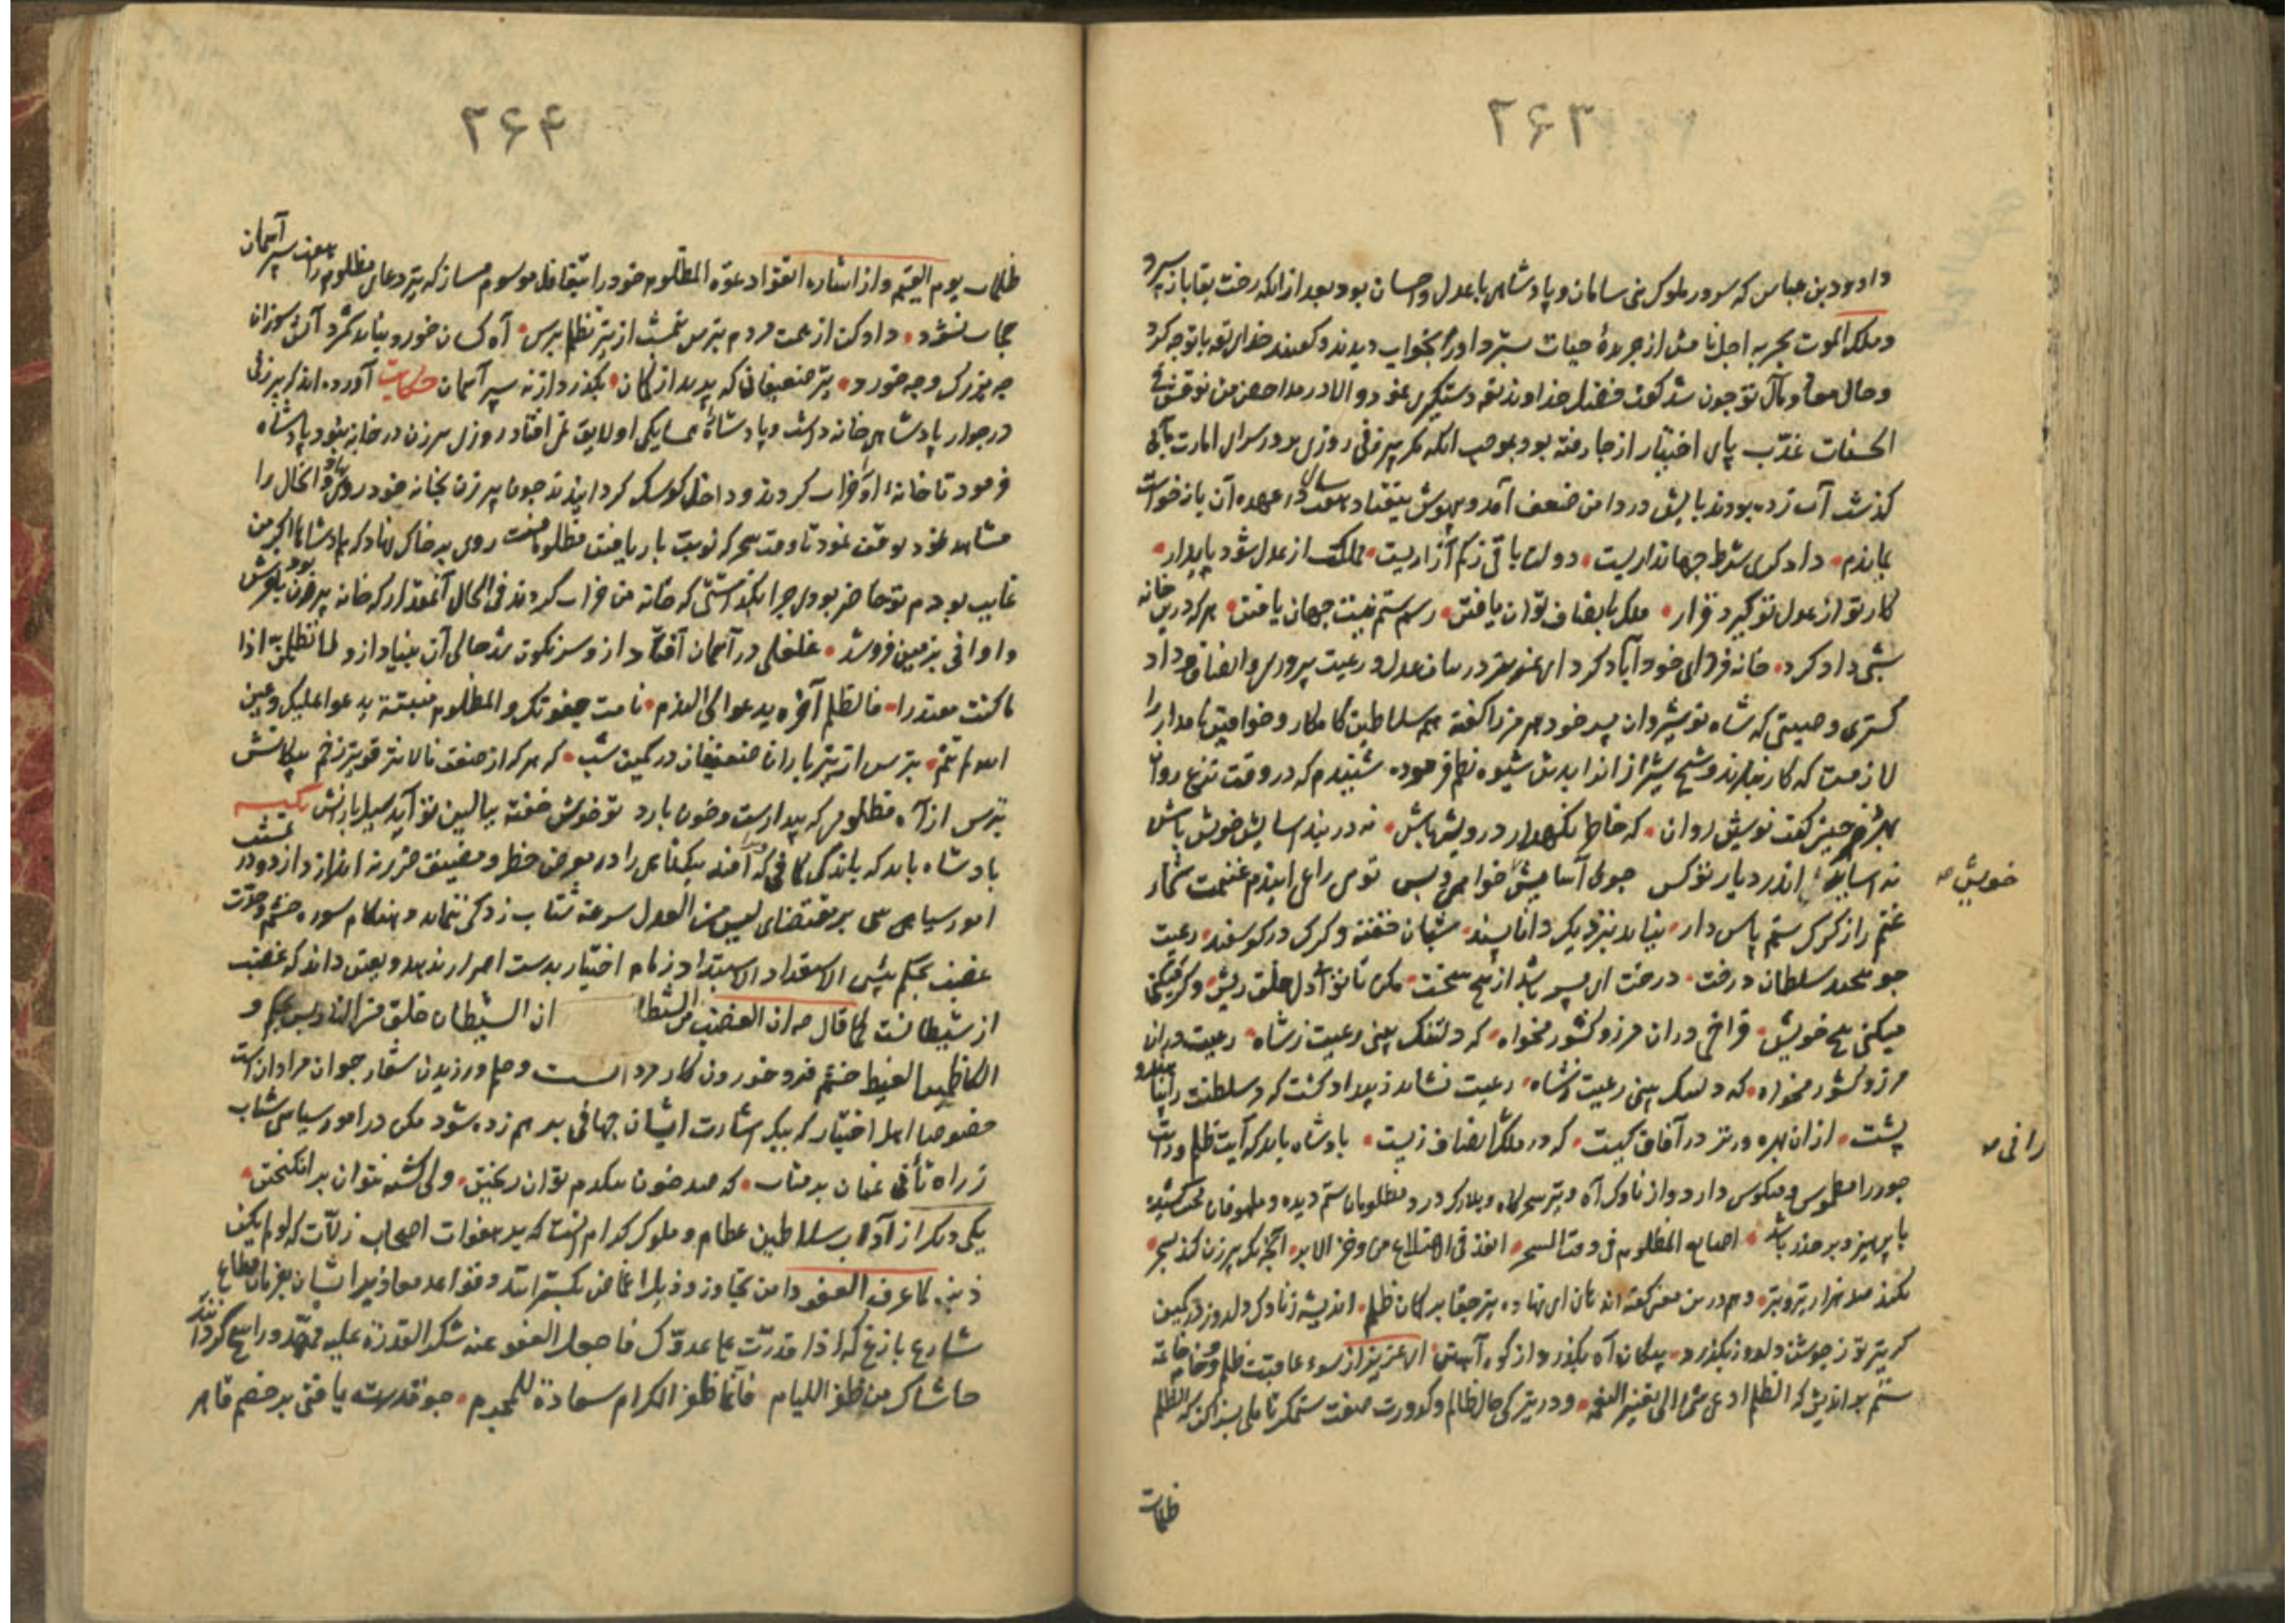 ۲۶۳
داود بن عباس که سرور ملوک بنی سامان و پادشاهی با عدل و احسان بود بعد از آنکه رخت بقا باز سپرد
و ملک الموت بحربه اجل نامش از جریدهٔ حیات سترد او را بخواب دیدند و گفتند خدای تعه با تو چه کرد
و حال معاد و مآل تو چون شد گفت فضل خداوند تعه دستگیری نمود و الا در
پای اختیار از جا رفته بود بموجب آنکه مگر پیرزنی روزی در سرای امارت
گذشت آب زده بودند پایش در دامن ضعف آمد و بیفتاد هفت سال در عهده آن باز خواست
بماندم دادگری شرط جهانداریست دولت باقی ز کم آزاریست مملکت از عدل شود پایدار
کار تو از عدل تو گیرد قرار ملک بانصاف توان یافتن رسم ستم نیست جهان یافتن هر که درین خانه
شبی داد کرد خانه فردای خود آباد کرد ای عزیز در بیان عدل و رعیت پروری و انصاف و داد
گستری وصیتی که شاه نوشیروان پسر خود هرمز را گفته همه سلاطین کامکار و خواقین نامدار را
لازمست که کار بندند و شیخ شیراز اندا بدین شیوه نظم فرموده شنیدم که در وقت نزع روان
بهرمز چنین گفت نوشیروان که خاطر نگهدار درویش باش نه در بند آسایش خویش باش
نه آساید اندر دیار تو کس چو آسایش خواهی و بس
خویش صه
غنم را ز گرگ ستم پاس دار نیاید بنزدیک دانا پسند شبان خفته و گرگ در گوسفند رعیت
چو بیخند سلطان درخت درخت ای پسر باشد از بیخ سخت مکن تا توانی دل خلق ریش وگر میکنی
میکنی بیخ خویش فراخی در آن مرز و کشور مخواه که دلتنگ بینی رعیت ز شاه رعیت
مرز و کشور مخواه که دلتنگ بینی رعیت ز شاه رعیت نشاید ز بیداد کشت که مر سلطنت را پناهند و
پشت از آن بهره‌ورتر در آفاق کیست که در ملک بانصاف زیست پادشاه باید که آیت ظلم و رایت
رانی صه
جور را مطموس و منکوس دارد و از ناوک آه و تیر سحرگاه و درد مظلومان ستم دیده و ملهوفان محنت کشیده
با پرهیز و بر حذر باشد المظلوم فی وقت السحر انفذ فی من وخز الابر آنچه یک پیرزن کند بسحر
نکند صد هزار تیر و تبر و هم درین معنی گفته‌اند ای نهاده تیر جفا بر کمان ظلم اندیشه ز ناوک دلدوز در کمین
گر تیر تو ز جوشن دلدوز بگذرد پیکان آه بگذرد از کوه آهنین ای عزیز از سوء عاقبت ظلم و خاتمه
ستم براندیش که الظلم ادعی شیء الی تغییر النعمة و در تیرگی حال ظالم و کدورت صفت ستمگر تأملی بسزا کن که الظلم
ظلمات
۲۶۴
ظلمات یوم القیمه و از اشاره اتقوا دعوة المظلوم خود را بتغافل موسوم مساز که تیر دعای مظلوم را هفت سپر آسمان
حجاب نشود داد کن از همت مردم بترس نیمشب از تیر تظلم بترس آه کسان خورد نباید شمرد آتش سوزان
چه بزرگ و چه خورد تیر ضعیفان که بپرید از کمان بگذرد از نه سپر آسمان حکایت آورده‌اند که پیرزنی
در جوار پادشاهی خانه داشت و پادشاه را همسایگی او لایق نمی‌افتاد روزی پیرزن در خانه نبود پادشاه
فرمود تا خانهٔ او را خراب کردند و داخل کوشک گردانیدند چون پیرزن بخانه خود روی نهاد و آنحال را
مشاهده نمود توقف نمود تا وقت سحر که نوبت بار یافتن مظلومانست روی بر خاک نهاد که پادشاها اگر من
غایب بودم تو حاضر بودی چرا بگذاشتی که خانه من خراب کردند فی الحال آنقدر که خانه پیرزن بود
بزمین فرو شد غلغلی در آسمان افتاد
ما کنت مقتدرا فالظلم آخره یدعو الی الندم نامت جفونک و المظلوم منتبه یدعو علیک و عین
الله لم تنم بترس از تیر باران ضعیفان در کمین شب که هر که از ضعف نالانتر قویتر زخم پیکانش
بترس از آه مظلومی که بیدارست و خون بارد تو خوش خفته ببالین تو آید سیل بارانش
پادشاه باید که باندک که از بیگناهی را در معرض خطر و مضیق ضرر نه اندازد و در
امور سیاسی بمقتضای لیس من العدل سرعة شتاب زدگی ننماید و هنگام سورت خشم و حدت
غضب بحکم بئس الاستعداد الاستبداد زمام اختیار بدست اصرار ندهد و یقین داند که غضب
از شیطانست کما قال صه ان الغضب من الشیطان ان الشیطان خلق من النار
الکاظمین الغیظ خشم فرو خوردن کار مردانست و حلم ورزیدن شعار جوانمردانست
خصوصا اهل اختیار که بیک اشارت ایشان جهانی بر هم زده شود مکن در امور سیاسی شتاب
ز راه تأنی عنان بر متاب که صد خون بیکدم توان ریختن ولی کشته نتوان برانگیختن
یکی دیگر از آداب سلاطین عظام و ملوک کرام آنست که بر هفوات اصحاب زلات که لو لم یکن
ذنب لما عرف العفو دامن تجاوز و ذیل اغماض بگسترانند و قواعد معاذیر ایشان بفرمان مطاع
شارع بازغ که اذا قدرت علی عدوک فاجعل العفو عنه شکر القدرة علیه ممهد و راسخ گردانند
حاشاک من ظفر اللیام فانما ظفر الکرام سعادة للمجرم چو قدرت یافتی بر خصم قاهر